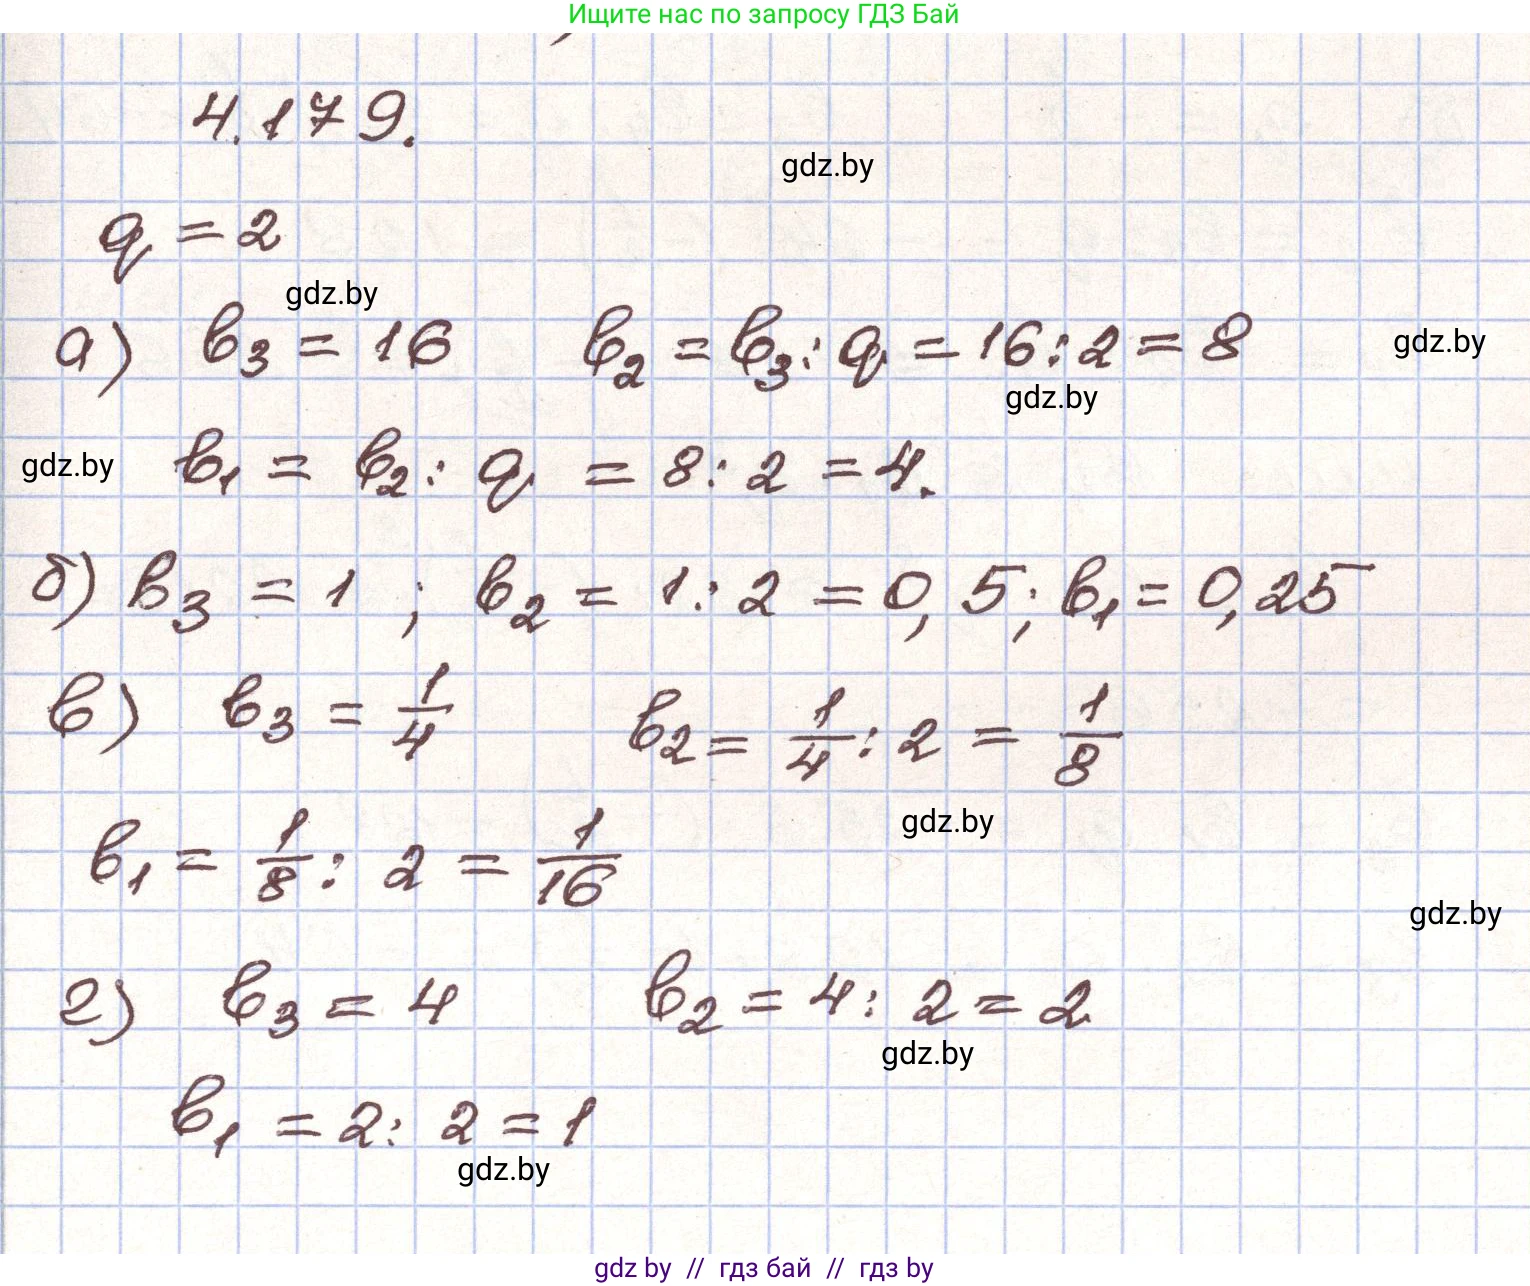 Ищите нас по запросу ГДЗ Бай
4.179.
gdz.by
q = 2
gdz.by
а) b₃ = 16 b₂ = b₃ : q = 16 : 2 = 8 gdz.by
gdz.by
gdz.by b₁ = b₂ : q = 8 : 2 = 4.
б) b₃ = 1 ; b₂ = 1 : 2 = 0,5; b₁ = 0,25
в) b₃ = 1/4 b₂ = 1/4 : 2 = 1/8
gdz.by
b₁ = 1/8 : 2 = 1/16
gdz.by
г) b₃ = 4 b₂ = 4 : 2 = 2
gdz.by
b₁ = 2 : 2 = 1
gdz.by
gdz by // гдз бай // гдз by